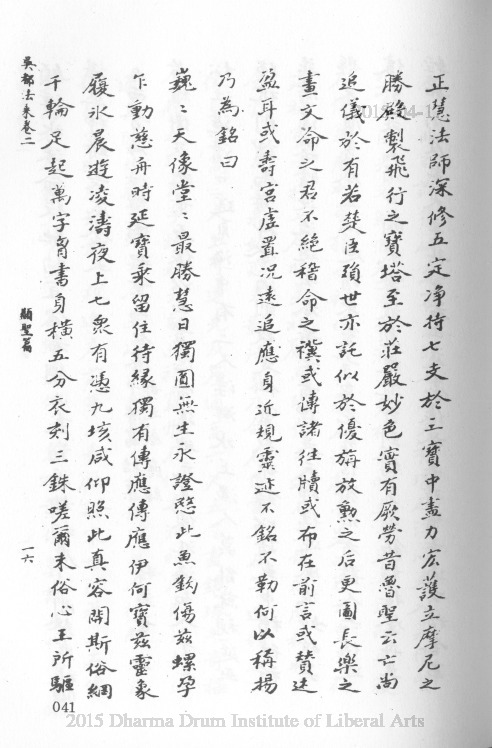 正慧法師深修五定净持七支於三寶中盡力宏護立摩尼之
勝殿製飛行之寶塔至於莊嚴妙色實有厥勞昔魯聖云亡尚
追儀於有若楚臣殞世亦託似於優旃放勲之后更圖長樂之
畫文命之君不絶稽命之禩或傳諸往牘或布在前言或賛述
盈耳或壽宮虚置况遠追應身近規靈迹不銘不勒何以稱揚
乃為銘曰
巍〻天像堂〻最勝慧日獨圓無生永證愍此魚釣傷兹螺孕
乍動慈舟時延寶乘留住待緣獨有傳應傳應伊何寶兹靈象
履氷晨遊凌濤夜上七衆有憑九垓咸仰照此真容開斯俗網
千輪足起萬字胷書身横五分衣刻三銖嗟爾未俗心王所驅
吳都法乘卷二
顯聖篇
一六
041
2015 Dharma Drum Institute of Liberal Arts